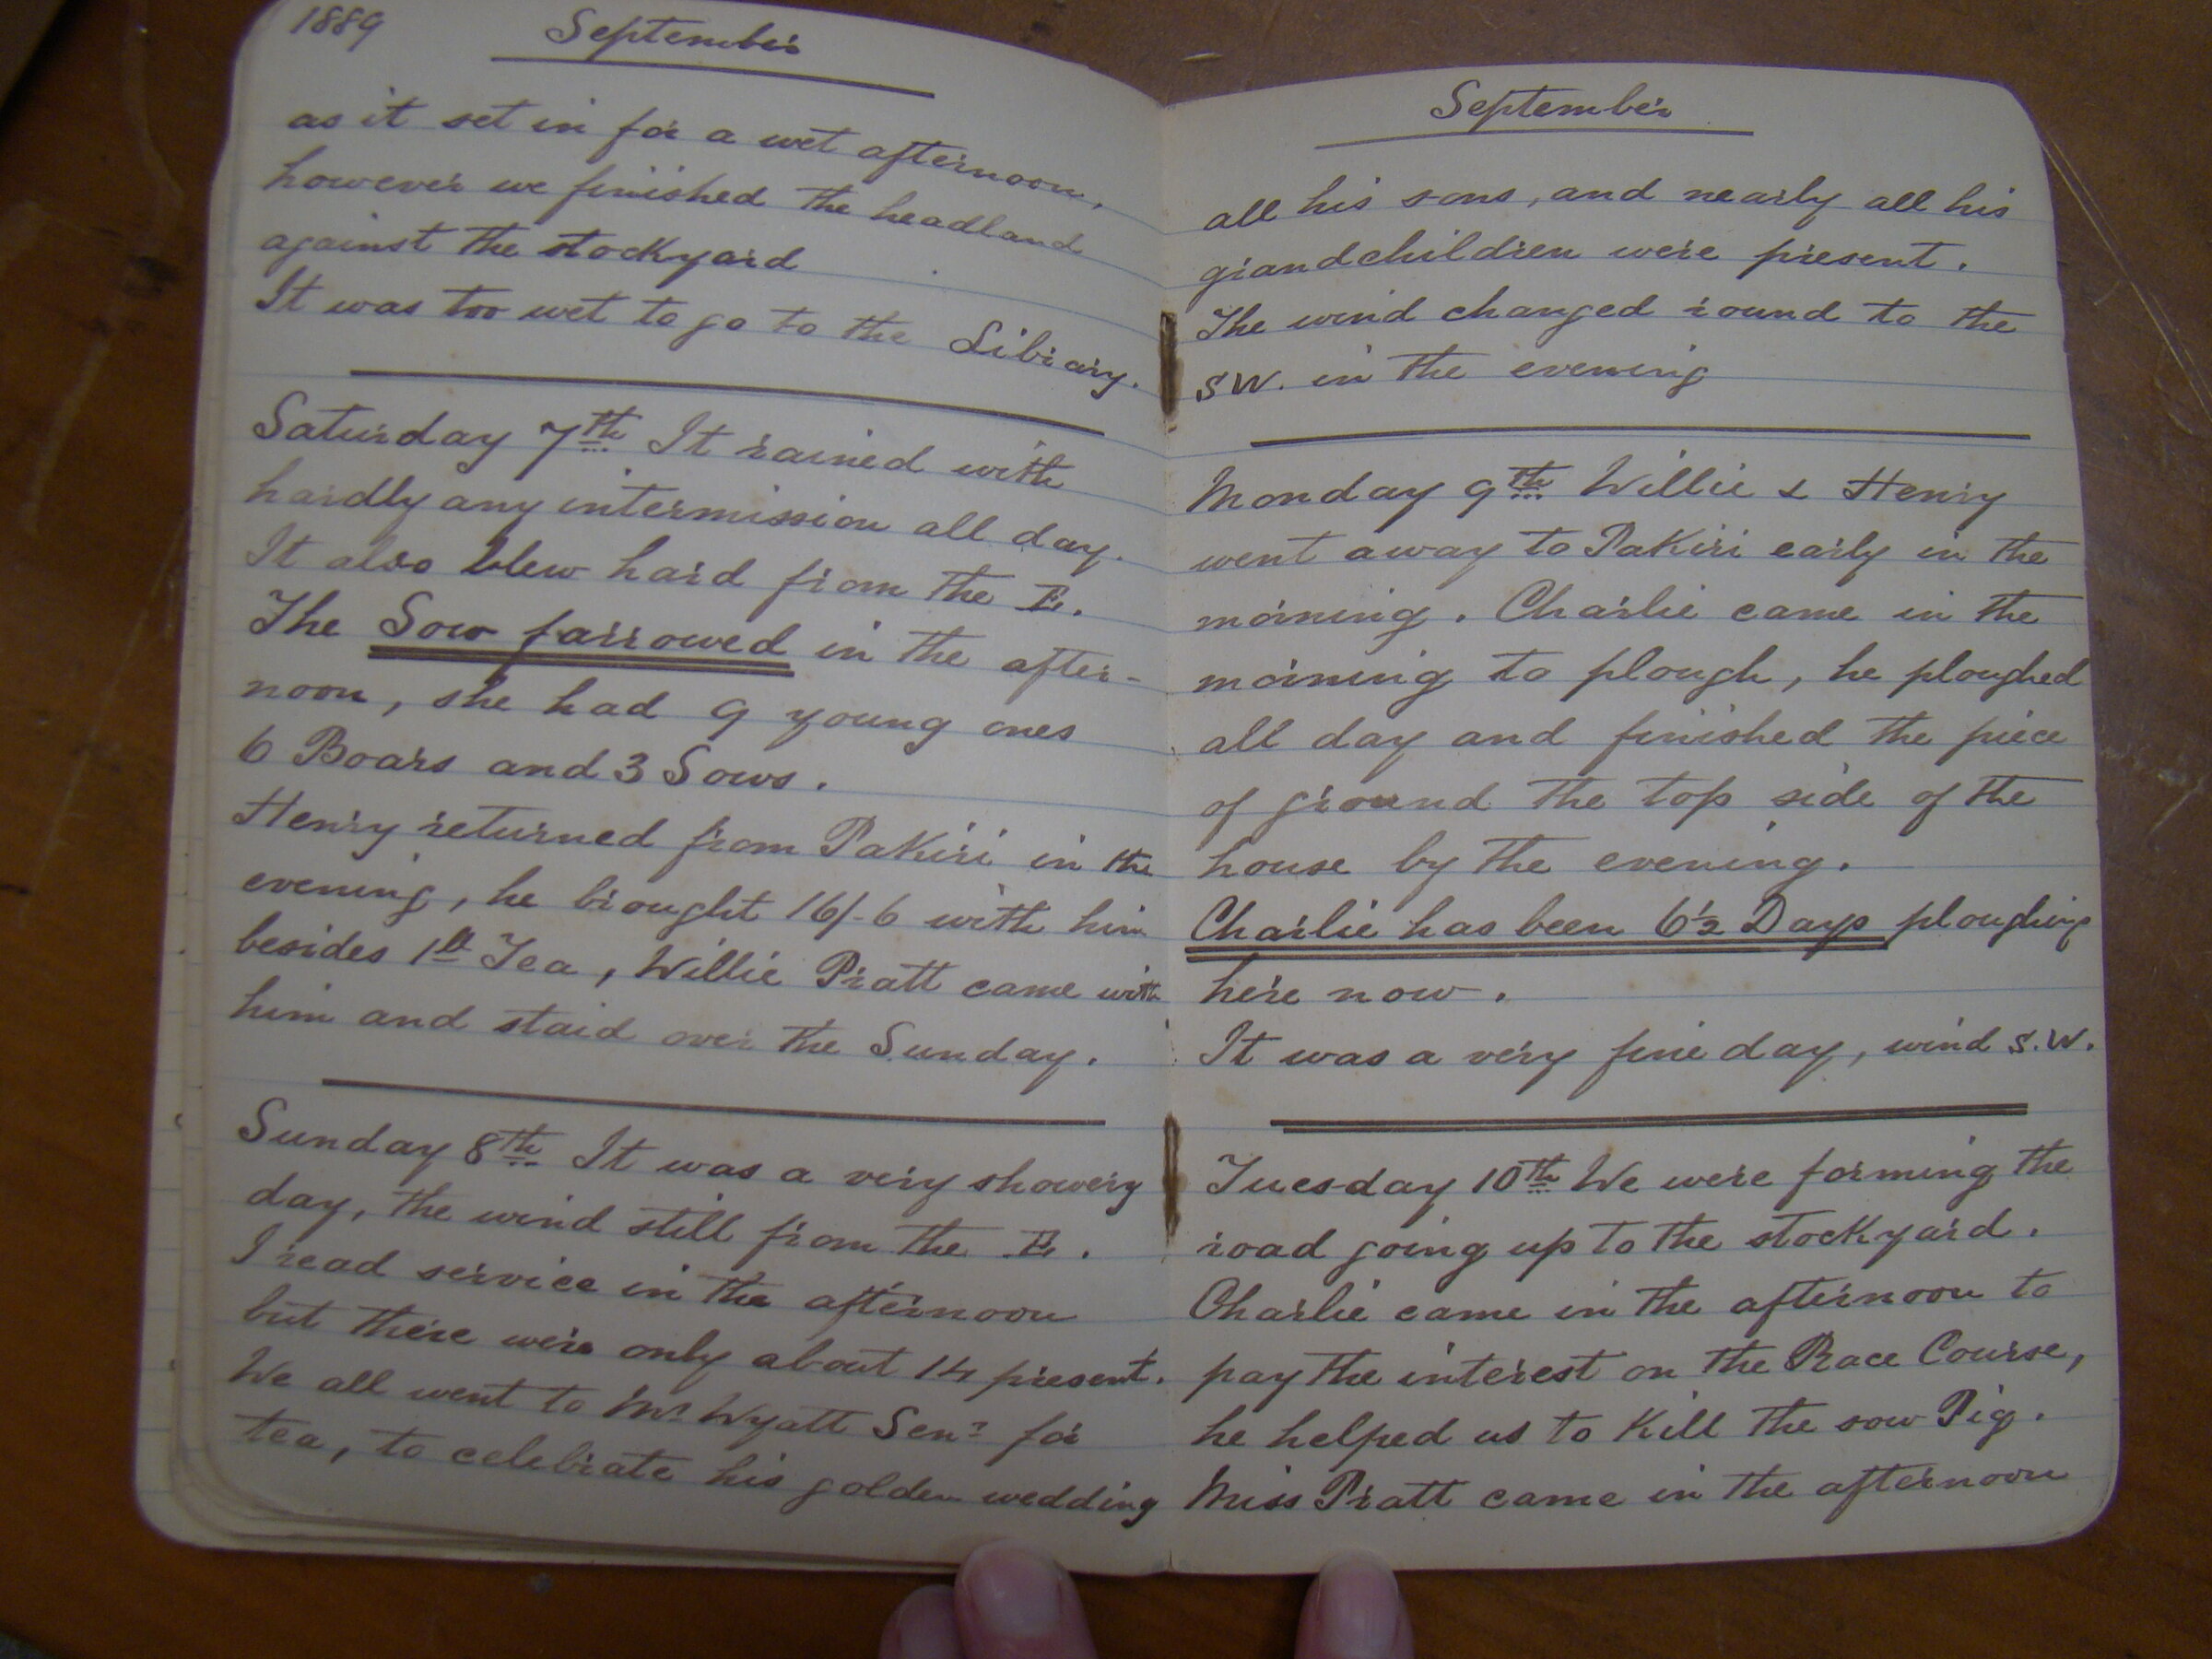 1889 September
as it set in for a wet afternoon,
however we finished the headland
against the stockyard
It was too wet to go to the Library.
Saturday 7th It rained with
hardly any intermission all day.
It also blew hard from the E.
The Sow farrowed in the after-
noon, she had 9 young ones
6 Boars and 3 Sows.
Henry returned from Pakiri in the
evening, he brought 16/-6 with him
besides 1lb Tea, Willie Pratt came with
him and staid over the Sunday.
Sunday 8th It was a very showery
day, the wind still from the E.
I read service in the afternoon
but there were only about 14 present.
We all went to Mr Wyatt Senr for
tea, to celebrate his golden wedding
September
all his sons, and nearly all his
grandchildren were present.
The wind changed round to the
SW. in the evening
Monday 9th Willie & Henry
went away to Pakiri early in the
morning. Charlie came in the
morning to plough, he ploughed
all day and finished the piece
of ground the top side of the
house by the evening.
Charlie has been 6½ Days ploughing
here now.
It was a very fine day, wind S.W.
Tuesday 10th We were forming the
road going up to the stockyard.
Charlie came in the afternoon to
pay the interest on the Race Course,
he helped us to kill the sow Pig.
Miss Pratt came in the afternoon